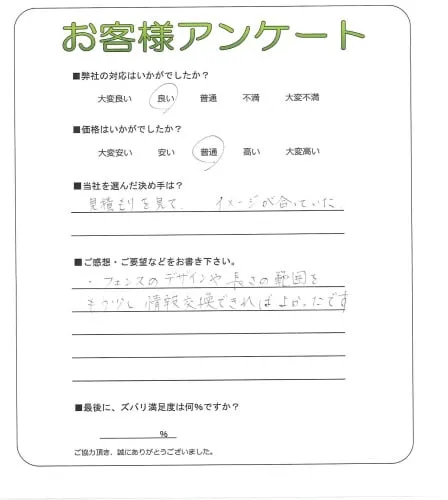 お客様アンケート
■弊社の対応はいかがでしたか？
大変良い 良い 普通 不満 大変不満
■価格はいかがでしたか？
大変安い 安い 普通 高い 大変高い
■当社を選んだ決め手は？
見積もりを見て、 イメージが合っていた
■ご感想・ご要望などをお書き下さい。
・フェンスのデザインや長さの範囲を
もう少し情報交換できればよかったです
■最後に、ズバリ満足度は何%ですか？
%
ご協力頂き、誠にありがとうございました。